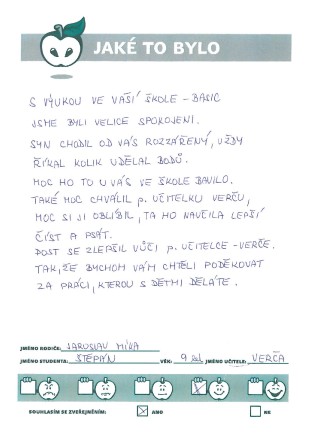 JAKÉ TO BYLO
S VÝUKOU VE VAŠÍ ŠKOLE - BASIC
JSME BYLI VELICE SPOKOJENI.
SYN CHODIL OD VÁS ROZZÁŘENÝ, VŽDY
ŘÍKAL KOLIK UDĚLAL BODŮ.
MOC HO TO U VÁS VE ŠKOLE BAVILO.
TAKÉ MOC CHVÁLIL p. UČITELKU VERČU,
MOC SI JI OBLÍBIL, TA HO NAUČILA LEPŠÍ
ČÍST A PSÁT.
DOST SE ZLEPŠIL VŮČI p. UČITELCE - VERČE.
TAK, ŽE BYCHOM VÁM CHTĚLI PODĚKOVAT
ZA PRÁCI, KTEROU S DĚTMI DĚLÁTE.
JMÉNO RODIČE: JAROSLAV
JMÉNO STUDENTA: ŠTĚPÁN VĚK: 9 let JMÉNO UČITELE: VERČA
SOUHLASÍM SE ZVEŘEJNĚNÍM: ANO NE